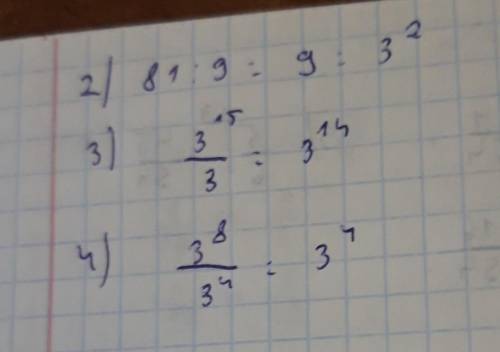 2) 81 : 9 = 9 = 3²
3) 3¹⁵/3 = 3¹⁴
4) 3⁸/3⁴ = 3⁴